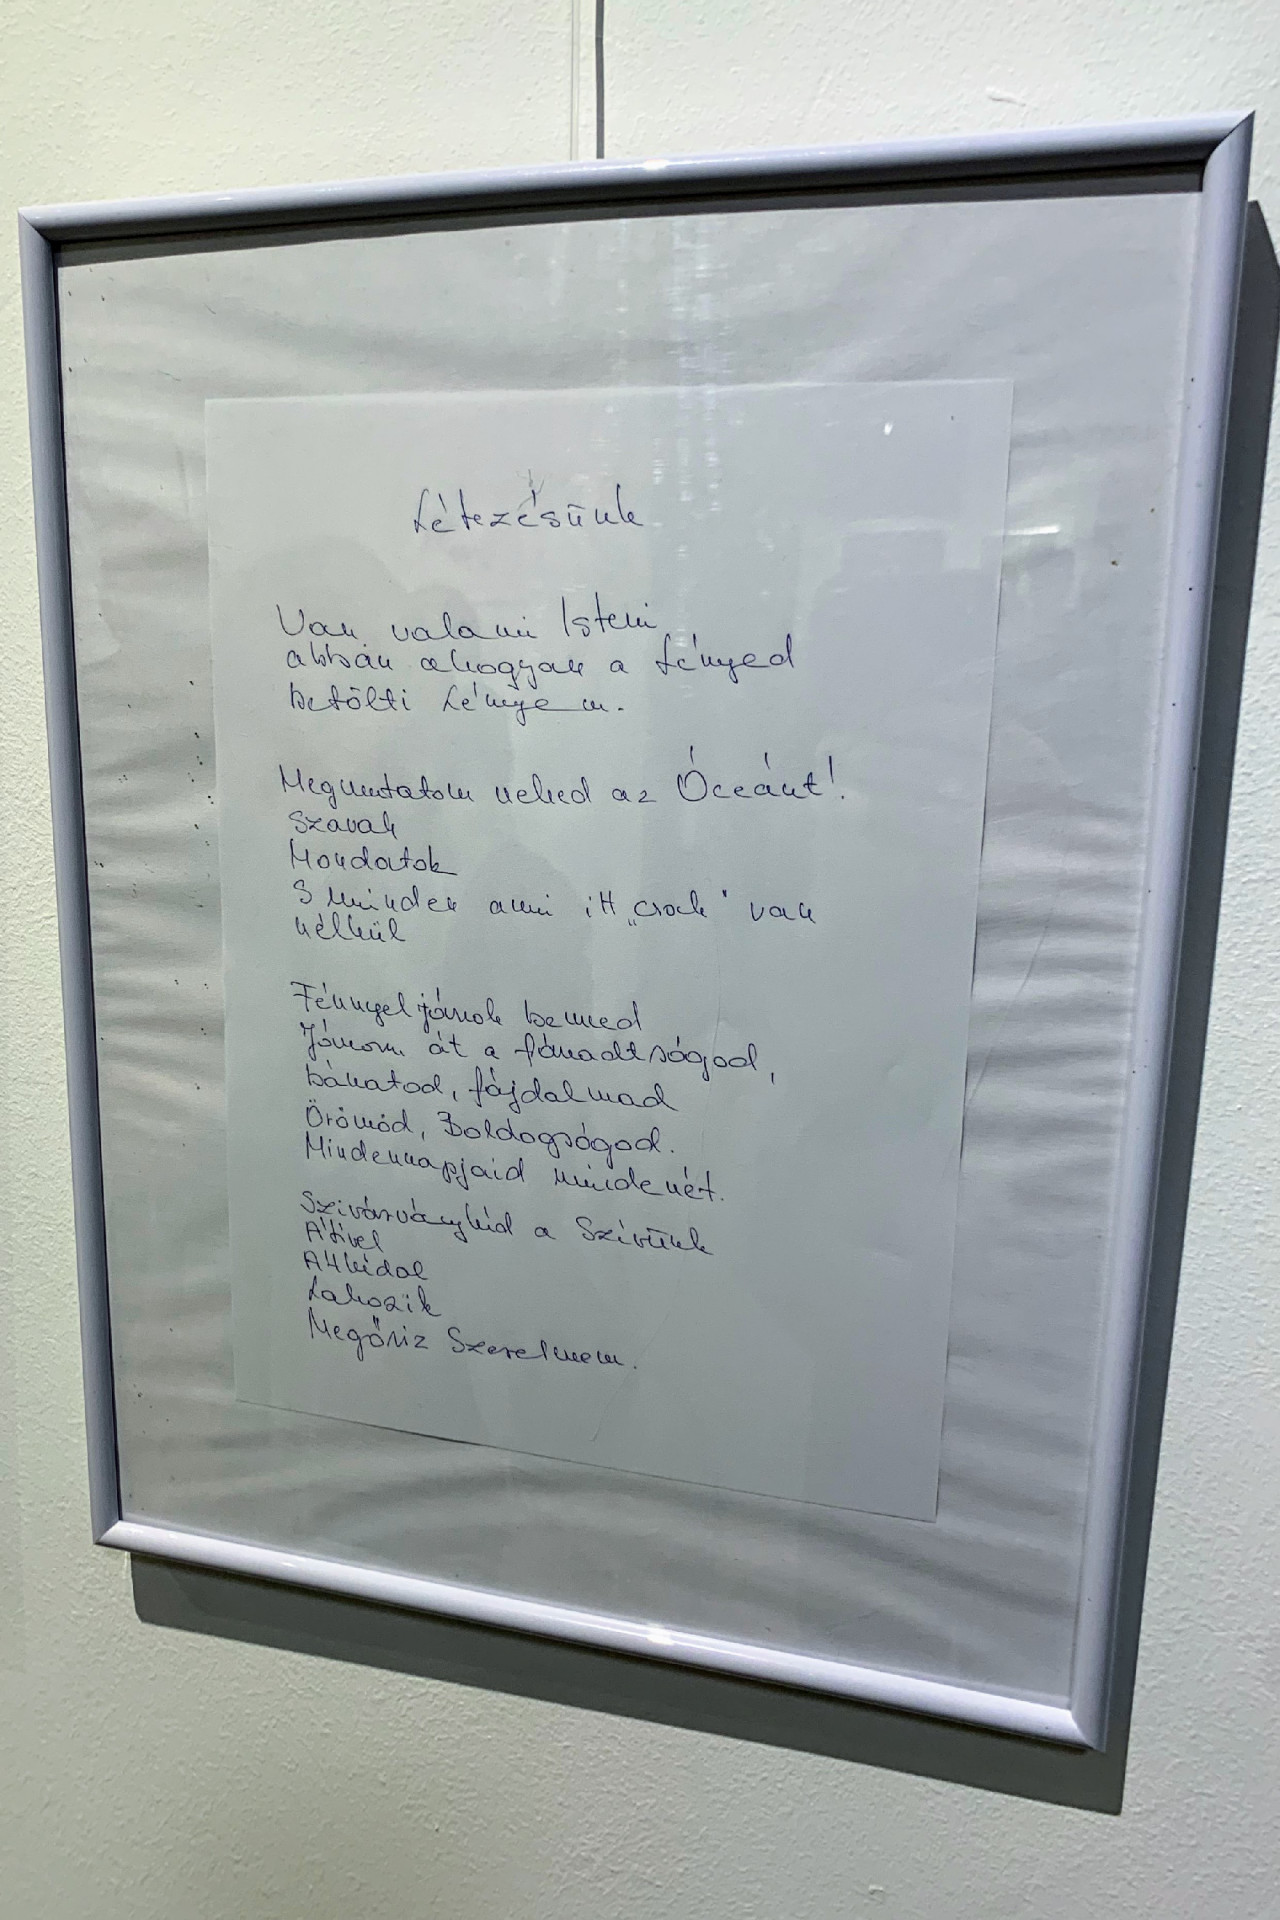 Létezésünk
Van valami Isteni
abban ahogyan a fényed
betölti Lényem.
Megmutatom neked az Óceánt!
Szavak
Mondatok
S minden ami itt „csak" van
nélkül
Fénnyel járok benned
Járom át a fáradtságod,
bánatod, fájdalmad
Örömöd, Boldogságod.
Mindennapjaid mindenét.
Szivárványhíd a Szívünk
Átível
Áthidal
Lakozik
Megőriz Szerelmem.